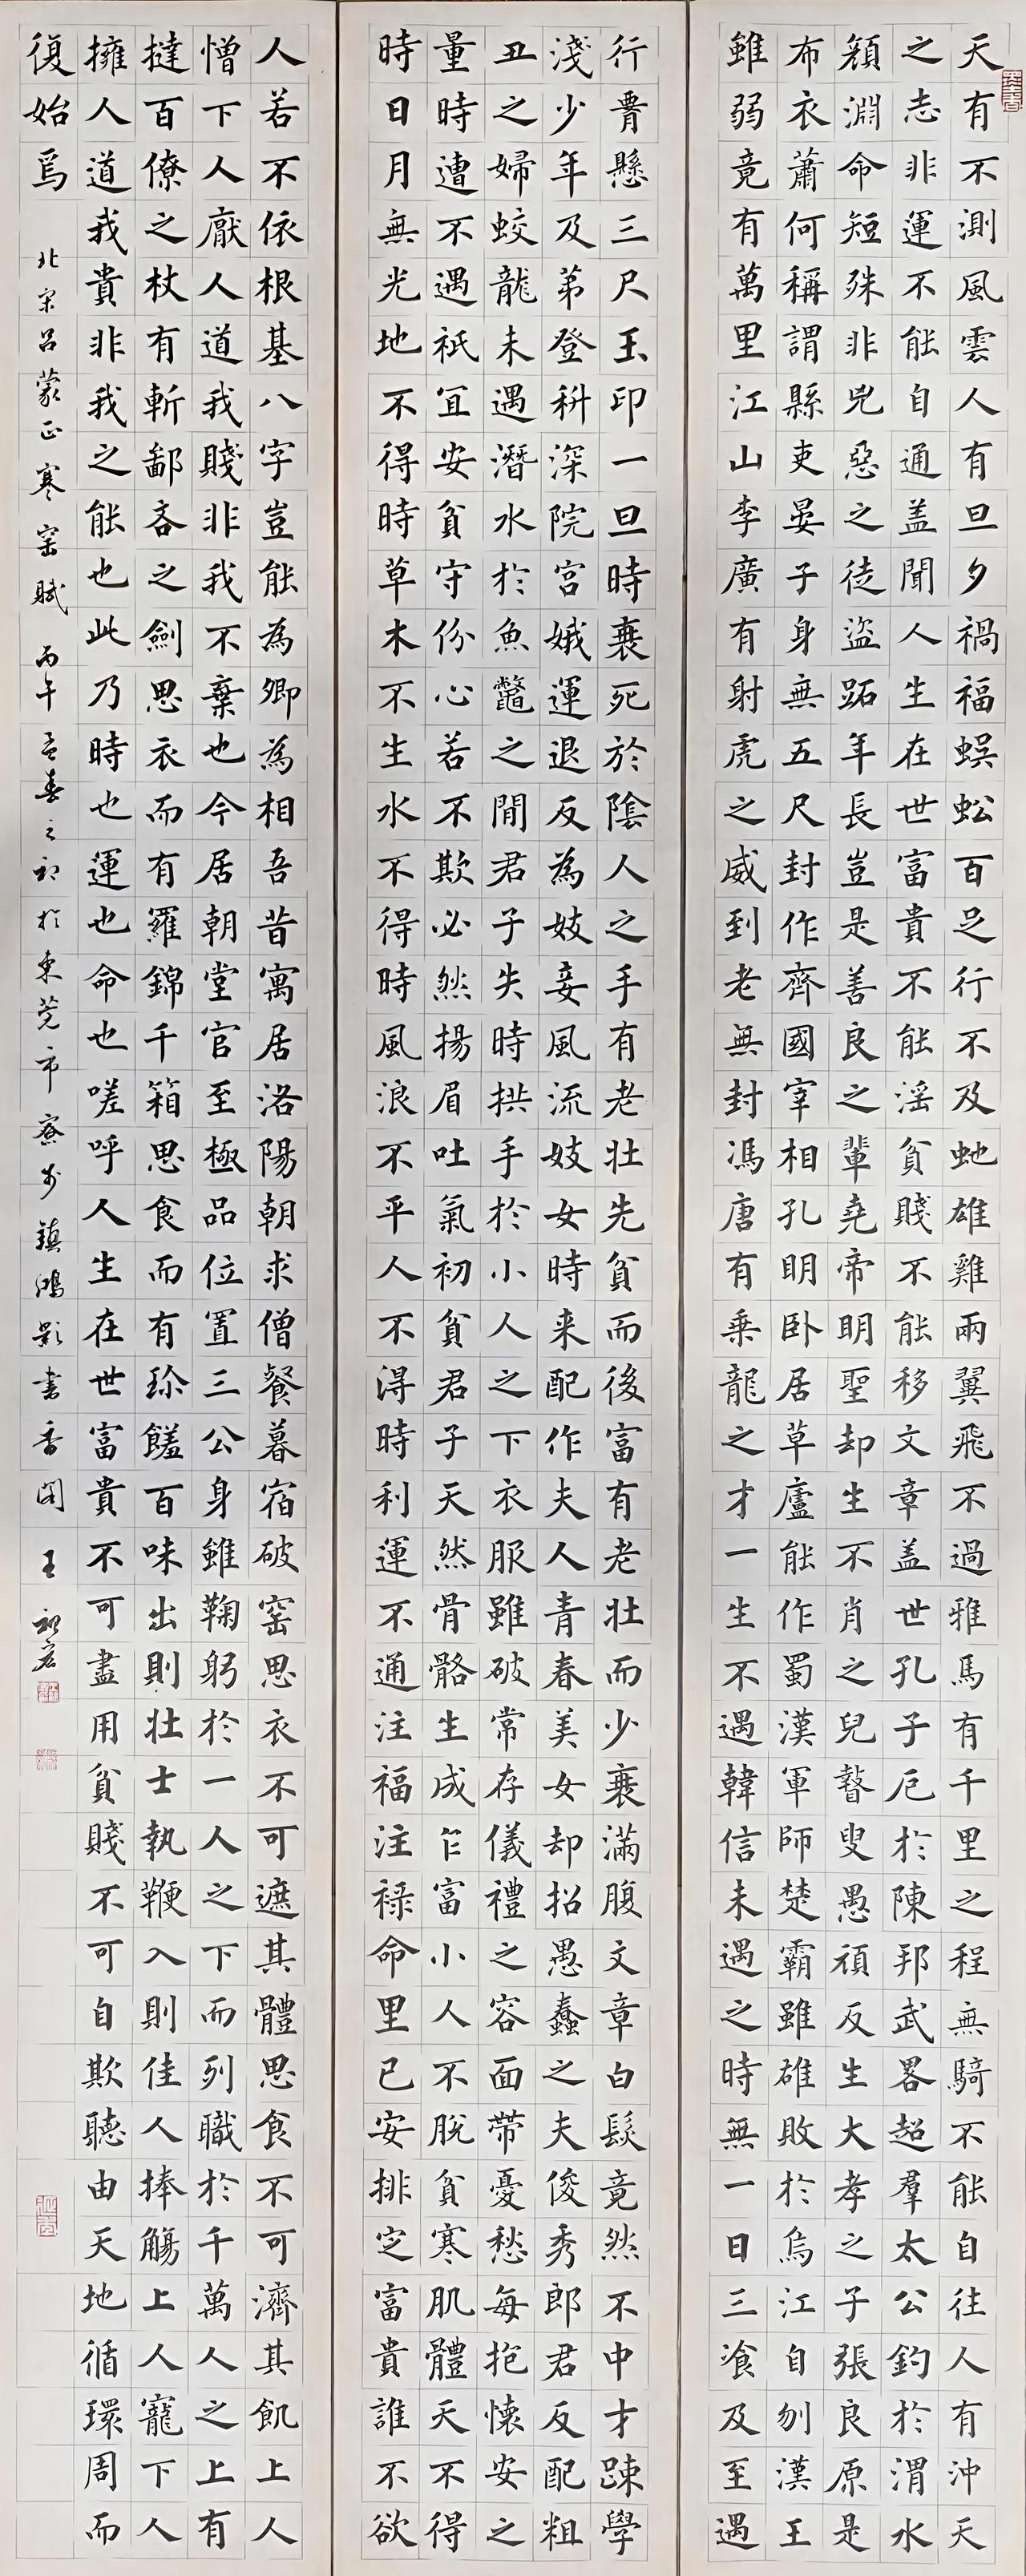 天有不測風雲人有旦夕禍福蜈蚣百足行不及虵雄雞兩翼飛不過雅馬有千里之程無騎不能自往人有沖天
之志非運不能自通盖聞人生在世富貴不能淫貧賤不能移文章盖世孔子厄於陳邦武畧超羣太公釣於渭水
顏淵命短殊非兇惡之徒盜跖年長豈是善良之輩堯帝明聖却生不肖之兒瞽叟愚頑反生大孝之子張良原是
布衣蕭何稱謂縣吏晏子身無五尺封作齊國宰相孔明卧居草廬能作蜀漢軍師楚霸雖雄敗於烏江自刎漢王
雖弱竟有萬里江山李廣有射虎之威到老無封馮唐有乘龍之才一生不遇韓信未遇之時無一日三飡及至遇
行罾懸三尺玉印一旦時衰死於陰人之手有老壯先貧而後富有老壯而少衰滿腹文章白髮竟然不中才踈學
淺少年及弟登科深院宮娥運退反為妓妾風流妓女時来配作夫人青春美女却招愚蠢之夫俊秀郎君反配粗
丑之婦蛟龍未遇潛水於魚鼈之間君子失時拱手於小人之下衣服雖破常存儀禮之容面带憂愁每抱懷安之
量時遭不遇祇宜安貧守份心若不欺必然揚眉吐氣初貧君子天然骨骼生成乍富小人不脫貧寒肌體天不得
時日月無光地不得時草木不生水不得時風浪不平人不淂時利運不通注福注祿命里已安排定富貴誰不欲
人若不依根基八字豈能為卿為相吾昔寓居洛陽朝求僧餐暮宿破窑思衣不可遮其體思食不可濟其飢上人
憎下人厭人道我賤非我不棄也今居朝堂官至極品位置三公身雖鞠躬於一人之下而列職於千萬人之上有
撻百僚之杖有斬鄙吝之劍思衣而有羅錦千箱思食而有珍饈百味出則壯士執鞭入則佳人捧觴上人寵下人
擁人道我貴非我之能也此乃時也運也命也嗟呼人生在世富貴不可盡用貧賤不可自欺聽由天地循環周而
復始焉
北宋吕蒙正寒窑賦 丙午孟春之初於東莞市寮步鎮鴻影書香閣 王